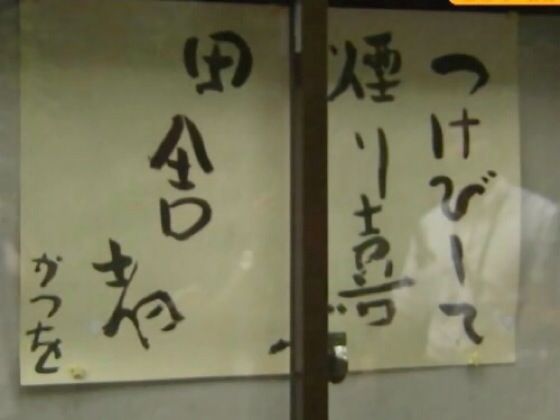 つけびーて
煙り喜ぶ
田舎者
かつを